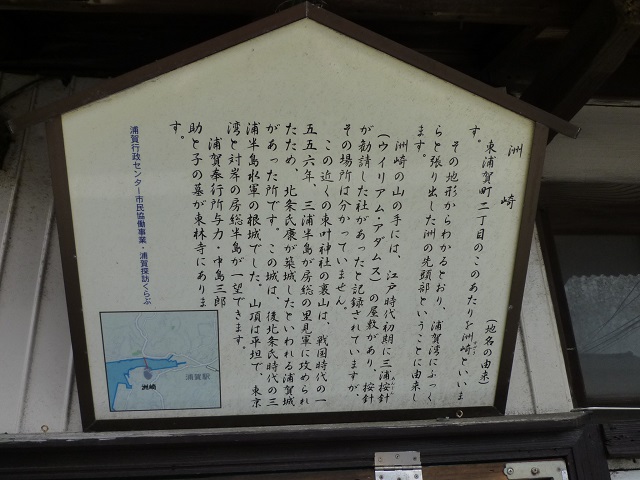 洲崎
(地名の由来)
東浦賀町二丁目のこのあたりを洲崎といいま
す。
その地形からわかるとおり、浦賀湾にふっく
らと張り出した洲の先頭部ということに由来し
ます。
洲崎の山の手には、江戸時代初期に三浦按針
(ウイリアム・アダムス)の屋敷があり、按針
が勧請した社があったと記録されていますが、
その場所は分かっていません。
この近くの東叶神社の裏山は、戦国時代の一
五五六年、三浦半島が房総の里見軍に攻められ
たため、北条氏康が築城したといわれる浦賀城
があった所です。この城は、後北条氏時代の三
浦半島水軍の根城でした。山頂は平坦で、東京
湾と対岸の房総半島が一望できます。
浦賀奉行所与力・中島三郎
助と子の墓が東林寺にありま
す。
浦賀行政センター市民協働事業・浦賀探訪くらぶ
洲崎
浦賀駅